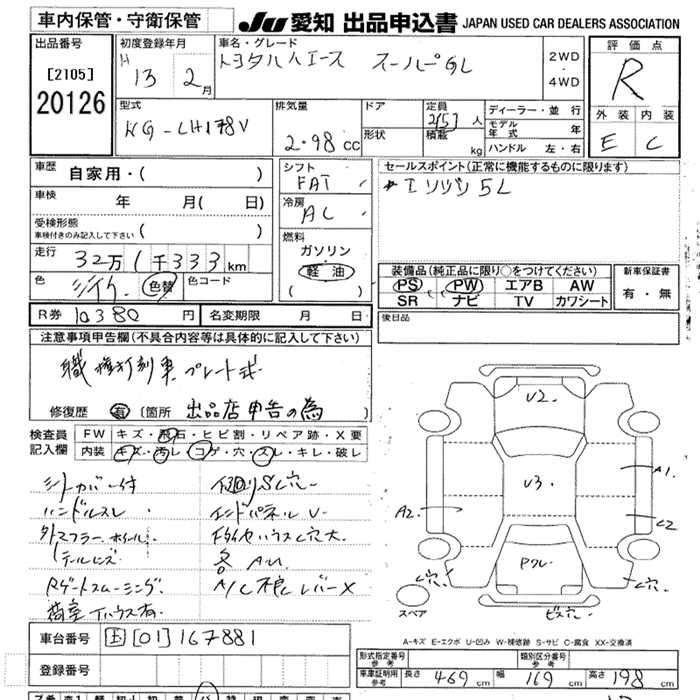 車内保管・守衛保管
JU 愛知 出品申込書 JAPAN USED CAR DEALERS ASSOCIATION
出品番号
[2105]
20126
初度登録年月
H 13 2月
車名・グレード
トヨタハイエース スーパーGL
2WD
・
4WD
評価点
R
外装 内装
E C
型式
KG-LH178V
排気量
2.98 cc
ドア
形状
定員
2(5)人
積載
kg
ディーラー・並行
モデル年式 年
ハンドル 左・右
車歴
自家用・( )
車検 年 月( 日)
受検形態
車検付きのみ記入して下さい ( )
走行 32万1千333km
色 色替 色コード
シフト
FAT
冷房
AC
燃料
ガソリン
軽油
( )
セールスポイント(正常に機能するものに限ります)
エンジン5L
装備品(純正品に限り○をつけてください)
PS PW エアB AW
SR ナビ TV カワシート
新車保証書
有・無
R券 10380円 名変期限 月 日
後日品
注意事項申告欄(不具合内容等は具体的に記入して下さい)
職権打刻車 プレート式
修復歴 有 〔箇所 出品店申告の為
検査員
記入欄
FW キズ・飛石・ヒビ割・リペア跡・X要
内装 キズ・汚レ・コゲ・穴・スレ・キレ・破レ
シートカバー付
ハンドルスレ
社外マフラー ホイール
テールレンズ
Rゲートスムージング
下廻りS穴
エンドパネルU
各AU
A/C不良 レバーX
U2
U3
A1
A2
C2
C穴
C穴
ビス穴
スペア
A-キズ E-エクボ U-凹み W-補修跡 S-サビ C-腐食 XX-交換済
車台番号 国[01]167881
登録番号
形式指定番号
参考
類別区分番号
参考
車庫証明用
参考
長さ 469cm 幅 169cm 高さ 198cm